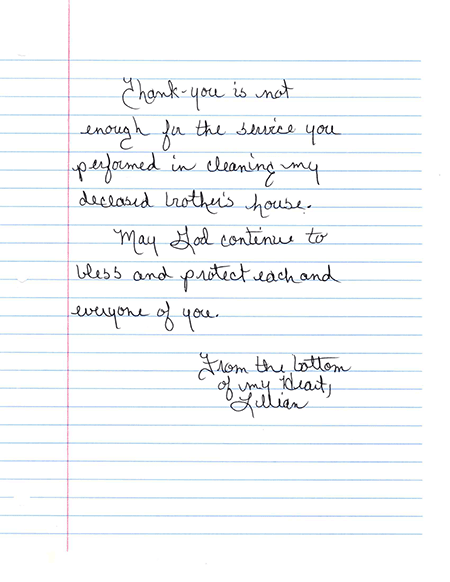 Thank-you is not
enough for the service you
performed in cleaning my
deceased brother's house.
May God continue to
bless and protect each and
everyone of you.
From the bottom
of my Heart,
Lillian